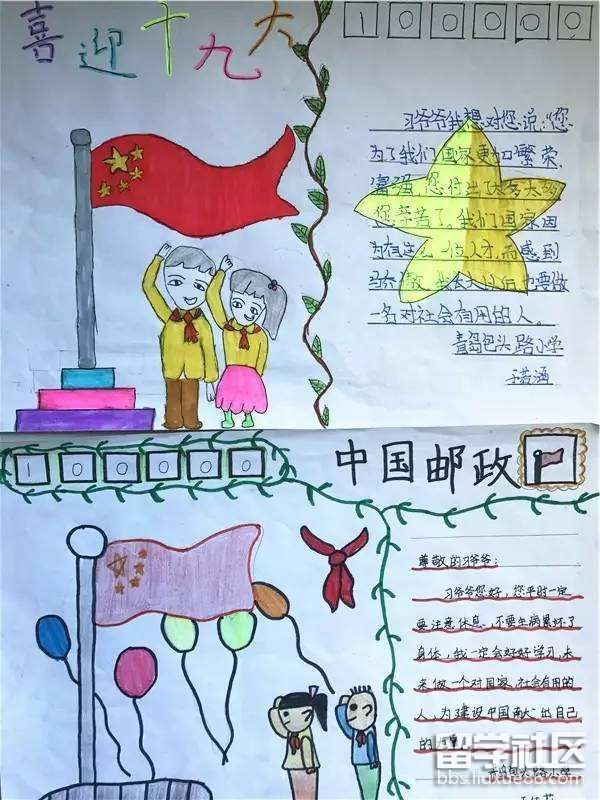 喜迎十九大
100000
习爷爷我想对您说:"您
为了我们国家更加繁荣、
富强,您付出了太多太多
您辛苦了。我们国家因
为有这么一位人才,而感到
长大以后也要做
一名对社会有用的人。
青岛包头路小学
于若涵
100000
中国邮政
尊敬的习爷爷:
习爷爷您好,您平时一定
要注意休息、不要生病累坏了
身体,我一定会好好学习,未
来做一个对国家、社会有用的
人,为建设中国
出自己
的力量。
青岛包头路小学
留学社区
bbs.liuxue86.com